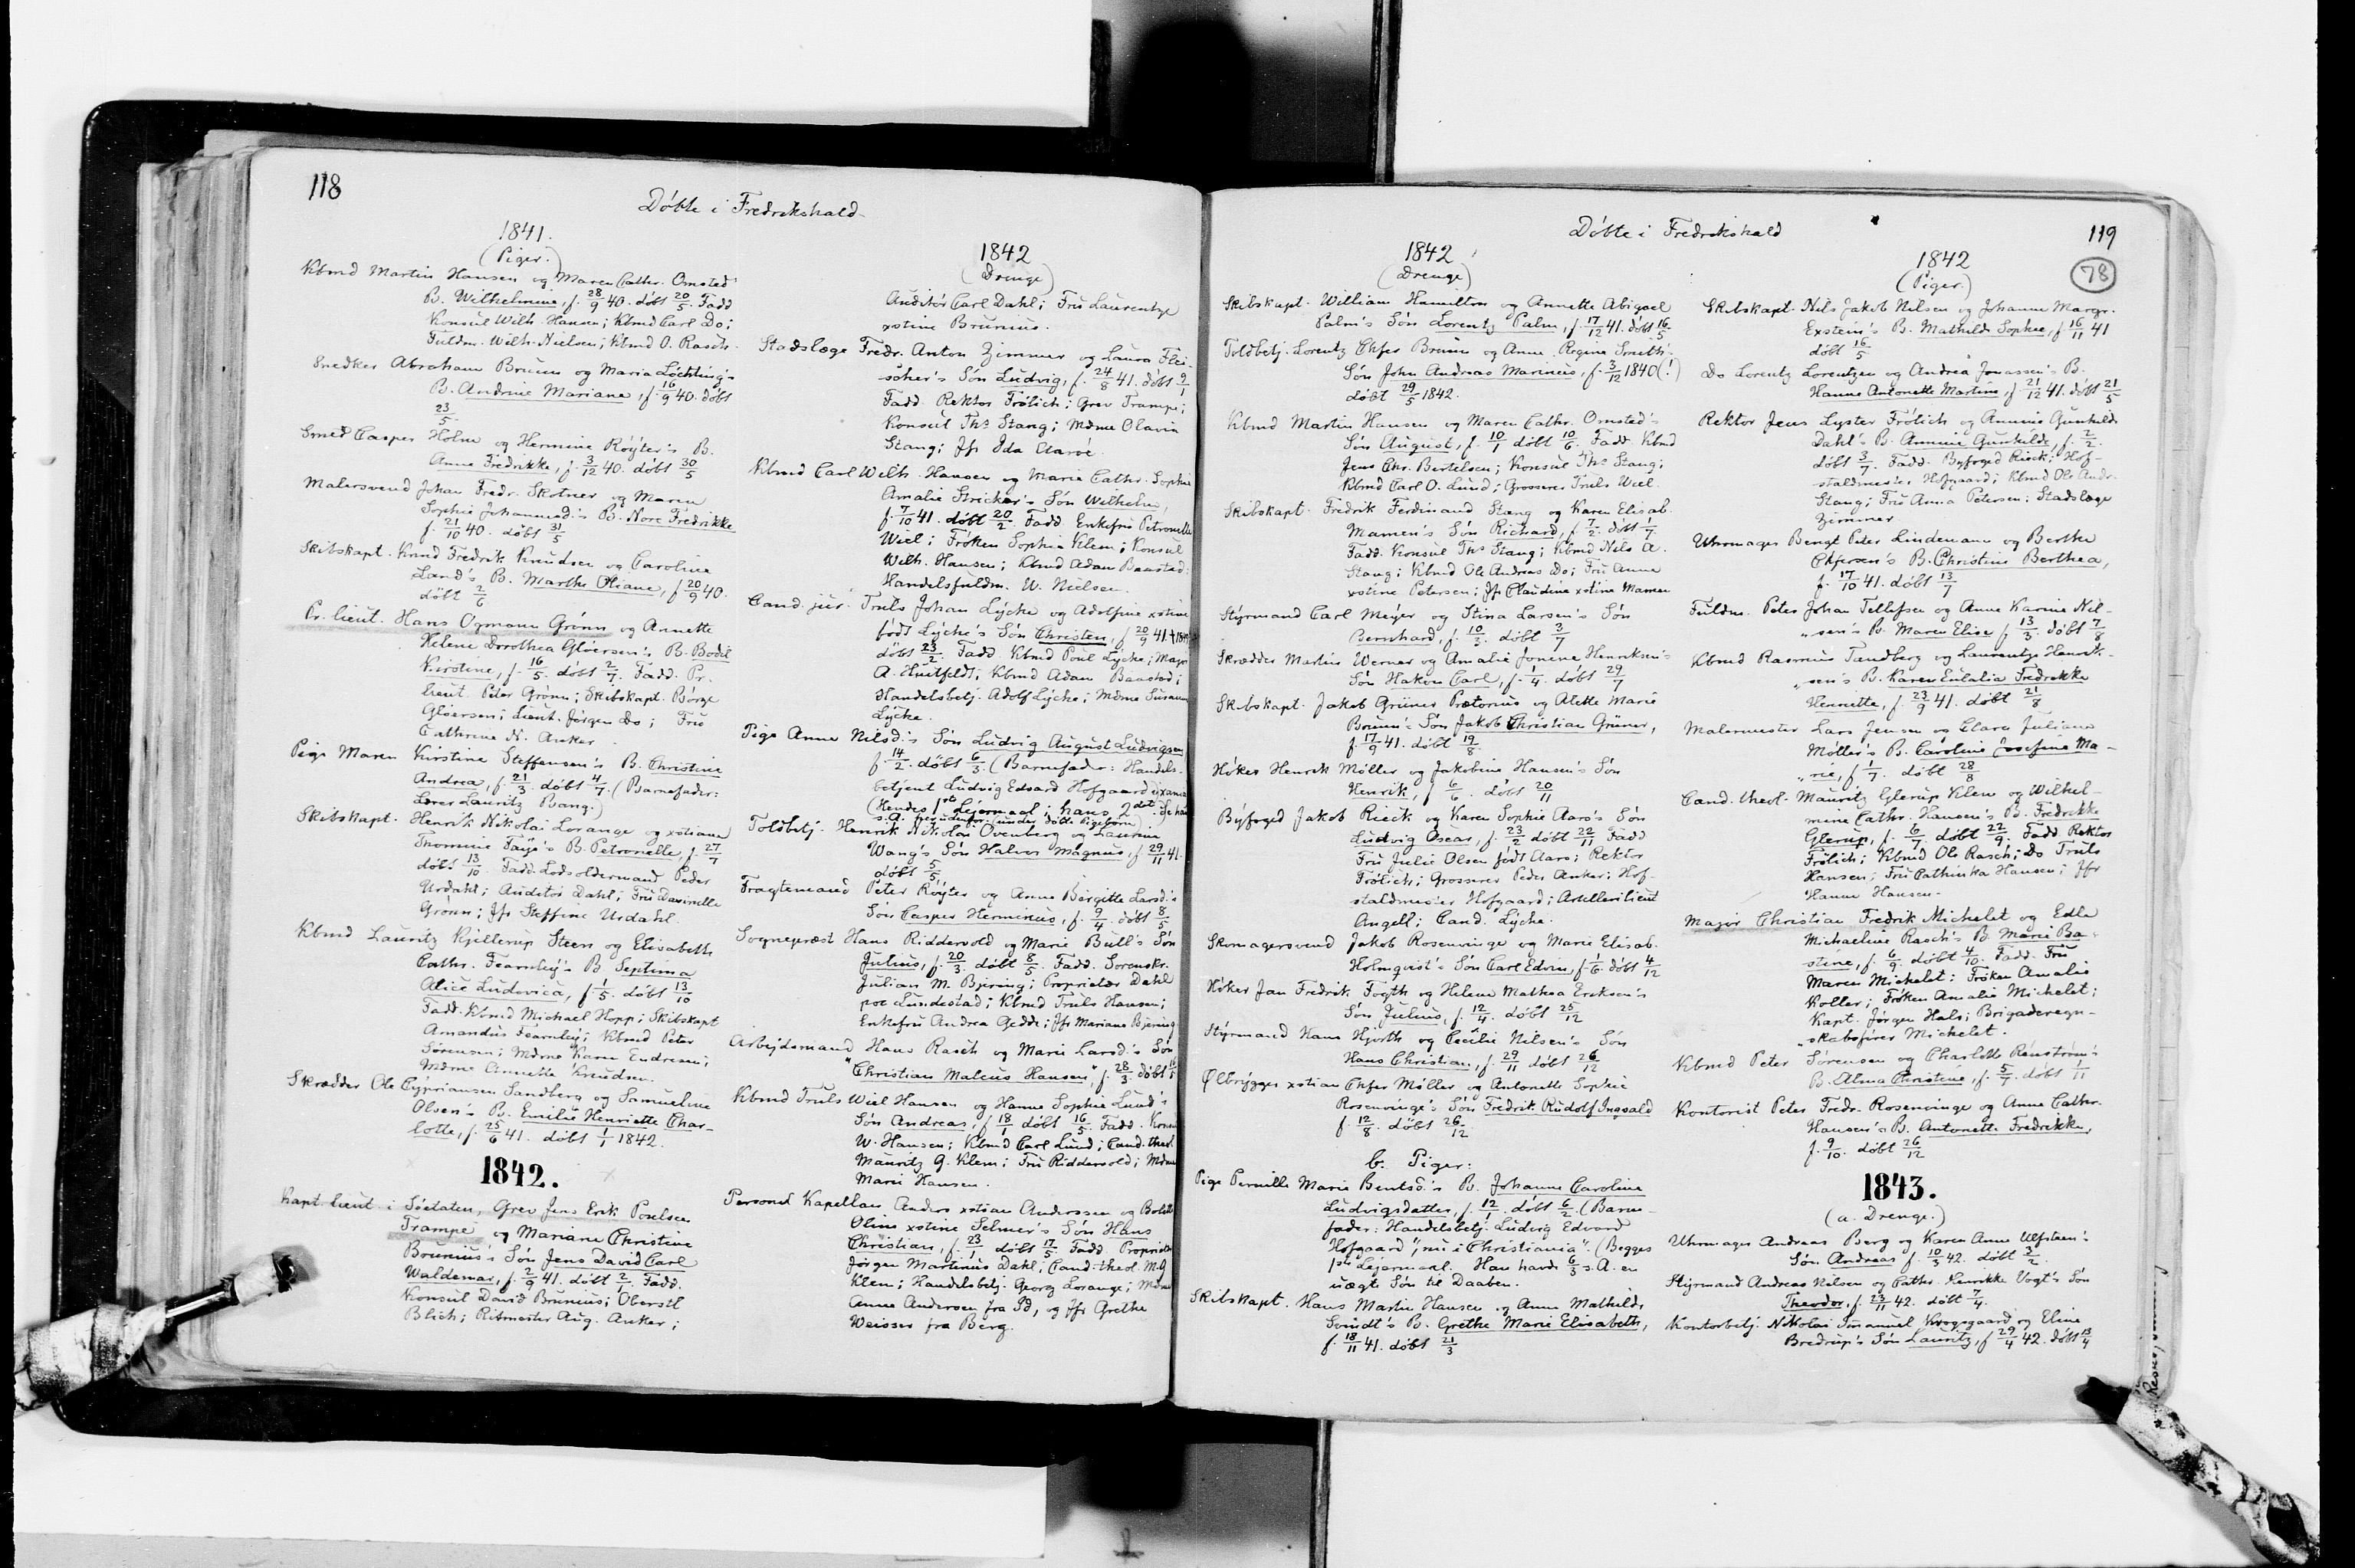 118
Döbte i Fredrikshald
1841.
(Piger.)
Kbmd Martin Hansen og Maren Cathr. Omsted
B. Wilhelmine, f. 28/9 40. döbt 20/5. Fadd
Konsul Wilh. Hansen; Kbmd Carl Do;
Fuldm. Wilh. Nielsen; Kbmd O. Rasch.
Snedker Abraham Bruun og Maria Löchting's
B. Andrine Mariane, f. 16/9 40. döbt
23/5.
Smed Casper Holm og Hermine Röyter's B.
Anne Fredrikke, f. 3/12 40. döbt 30/5
Malersvend Johan Fredr. Skotner og Maren
Sophie Johannesd.'s B. Nore Fredrikke
f. 21/10 40. döbt 31/5
Skibskapt. Knud Fredrik Knudsen og Caroline
Land's B. Marthe Oliane, f 20/9 40.
döbt 2/6
Pr. lieut. Hans Ozmann Grönn og Annette
Helene Dorothea Glöersen's B. Bodil
Kirstine, f. 16/5. döbt 2/7. Fadd. Pr.
lieut Peter Grönn; Skibskapt. Börge
Glöersen; Lieut. Jörgen Do; Frü
Cathrine N. Anker.
Pige Maren Kirstine Steffensen's B. Christine
Andrea, f. 21/3. döbt 4/7. (Barnefader:
Lærer Lauritz Bang.)
Skibskapt. Henrik Nikolai Lorange og xstiane
Thomine Faye's B. Petronelle, f. 27/7
döbt 13/10 Fadd. Lodsoldermand Peder
Urdahl; Auditör Dahl; Frü Davinelle
Grönn; Jfr Steffine Urdahl.
Kbmd Lauritz Kjellerup Steen og Elisabeth
Cathr. Fearnley's B. Septima
Alice Ludovica, f. 1/5. döbt 13/10
Fadd. Kbmd Michael Hopp; Skibskapt
Amandus Fearnley; Kbmd Peter
Sörensen; Mdme Karen Endresen;
Mdme Annette Knudsen.
Skrædder Ole Cyprianson Sandberg og Samueline
Olsen's B. Emilie Henriette Char-
lotte, f. 25/6 41. döbt 1/1 1842.
1842.
Kapt. lieut i Söetaten, Grev Jens Erik Poulsen
Trampe og Mariane Christine
Brunius's Sön Jens David Carl
Waldemar, f. 2/9 41. döbt 2/1. Fadd.
Konsul David Brunius; Oberstl
Blich; Ritmester Aug. Anker;
1842
(Drenge)
Auditör Carl Dahl; Frü Laurentze
xstine Brunius.
Stadslæge Fredr. Anton Zimmer og Laura Flei-
scher's Sön Ludvig, f. 24/8 41. döbt 9/1
Fadd. Rektor Frölich; Grev Trampe;
Konsul Ths Stang; Mdme Olavia
Stang; Jfr Ida Aaröe.
Kbmd Carl Wilh. Hansen og Marie Cathr. Sophie
Amalie Stricker's Sön Wilhelm,
f. 7/10 41. döbt 20/2. Fadd Enkefru Petronelle
Wiel; Fröken Sophie Klem; Konsul
Wilh. Hansen; Kbmd Adam Baastad;
Handelsfuldm. W. Nielsen.
Cand. jur. Truls Johan Lycke og Adolfine xstine
född Lycke's Sön Christen, f 20/9 41.
döbt 23/2. Fadd Kbmd Poul Lycke; Major
A. Huitfeldt; Kbmd Adam Baastad;
Handelsbetj. Adolf Lycke; Mdme Susanne
Lycke.
Pige Anne Nilsd.'s Sön Ludvig August Ludvigsen
f. 14/2. döbt 6/3. (Barnefader: Handels-
betjent Ludvig Edvard Hofgaard
(Hendes 1ste Lejermaal; hans 2det.
s. A. herudenfor. (under Döbte Pigebörn)
Toldbetj. Henrik Nikolai Ovenberg og Laurine
Wang's Sön Halvor Magnus, f. 29/11 41.
döbt 5/5
Fragtemand Peter Röyter og Anne Birgitte Larsd.'s
Sön Casper Herminius, f. 9/4. döbt 8/5
Sognepræst Hans Riddervold og Marie Bull's Sön
Julius, f. 20/3. döbt 8/5. Fadd. Sorenskr.
Julian M. Bjering; Proprietær Dahl
poe Lundestad; Kbmd Truls Hansen;
Enkefru Andrea Gedde; Jfr Mariane Bjering
Arbejdsmand Hans Rasch og Marie Larsd.'s Sön
"Christian Maleus Hansen", f. 28/3. döbt
Kbmd Truls Wiel Hansen og Hanne Sophie Lund's
Sön Andreas, f 18/1 döbt 16/5. Fadd. Konsul
W. Hansen; Kbmd Carl Lund; Cand. theol.
Mauritz G. Klem; Frü Riddervold; Mdme
Marie Hansen.
Personel Kapellan Anders xstian Anderssen og Bolette
Oline xstine Selmer's Sön Hans
Christian, f. 23/1. döbt 17/5 Fadd Proprietær
Jörgen Martinus Dahl; Cand. theol. M.G.
Klem; Handelsbetj. Georg Lorange; Mdme
Anne Andersen fra Id, og Jfr Grethe
Weisser fra Berg.
119
78
Döbte i Fredrikshald
1842
(Drenge)
Skibskapt. William Hamilton og Annette Abigael
Palm's Sön Lorentz Palm, f. 17/12 41. döbt 16/5
Toldbetj. Lorentz Chfer Bruun og Anne Regine Smith's
Sön John Andreas Marinius, f. 3/12 1840 (!)
döbt 29/5 1842.
Kbmd Martin Hansen og Maren Cathr. Omsted's
Sön August, f. 10/1 döbt 10/6. Fadd Kbmd
Jens Chr. Bertelsen; Konsul Ths Stang;
Kbmd Carl O. Lund; Grosserer Truls Wiel.
Skibskapt. Fredrik Ferdinand Stang og Karen Elisab.
Mamen's Sön Richard, f. 7/2. döbt 1/7.
Fadd. Konsul Ths Stang; Kbmd Nils A.
Stang; Kbmd Ole Andreas Do; Frü Anne
xstine Petersen; Jfr Claudine xstine Mamen
Styrmand Carl Meyer og Stina Larsen's Sön
Bernhard, f. 10/3. döbt 3/7
Skrædder Martin Werner og Amalie Jonine Henriksen's
Sön Hakon Carl, f. 1/4. döbt 29/7
Skibskapt. Jakob Grüner Prætorius og Alette Marie
Bruun's Sön Jakob Christian Grüner,
f. 17/9 41. döbt 19/8.
Höker Henrik Möller og Jakobine Hansen's Sön
Henrik, f 6/6. döbt 20/11
Byfoged Jakob Rieck og Karen Sophie Aaro's Sön
Ludvig Oscar, f. 23/2 döbt 22/11 Fadd
Frü Julie Olsen född Aaro; Rektor
Frölich; Grosserer Peder Anker; Hof-
staldmester Hofgaard; Artellerilieut
Angell; Cand. Lycke.
Skomagersvend Jakob Rosenvinge og Marie Elisab.
Holmqvist's Sön Carl Edvin, f 1/6 döbt 4/12
Höker Jan Fredrik Fogth og Helene Mathea Eriksen's
Sön Julius, f. 12/4. döbt 25/12
Styrmand Hans Hjorth og Cecilie Nilsen's Sön
Hans Christian, f. 29/11 döbt 26/12
Ölbrygger xstian Chfer Möller og Antonette Sophie
Rosenvinge's Sön Fredrik Rudolf Ingvald
f. 12/8. döbt 26/12
b. Piger:
Pige Pernille Marie Bentsd.'s B. Johanne Caroline
Ludvigsdatter, f. 12/1. döbt 6/2. (Barne-
fader: Handelsbetj. Ludvig Edvard
Hofgaard", nu i Christiania". (Begges
1ste Lejermaal. Han havde 6/3 s. A. en
uægte Sön til Daaben.
Skibskapt. Hans Martin Hansen og Anne Mathilde
Smidt's B. Grethe Marie Elisabeth,
f. 18/11 41. döbt 21/3
1842
(Piger.)
Skibskapt. Nils Jakob Nilsen og Johanne Margr.
Exstein's B. Mathilde Sophie, f. 16/11 41
döbt 16/5
Do Lorentz Lorentzen og Andrea Jonassen's B.
Hanne Antonette Martine, f 21/12 41. döbt 21/5
Rektor Jens Lyster Frölich og Annine Gunhilde
Dahl's B. Annine Gunhilde, f. 2/2.
döbt 3/7. Fadd. Byfoged Rieck; Hof-
staldmester Hofgaard; Kbmd Ole Andr.
Stang; Frü Anna Petersen; Stadslæge
Zimmer
Uhrmager Bengt Peter Lindemann og Berthe
Chfersen's B. Christine Berthea,
f. 17/10 41. döbt 13/7
Fuldm. Peter Johan Tellefsen og Anne Karine Nil-
"sen's B. Maren Elise f 13/3. döbt 7/8
Kbmd Rasmus Tandberg og Laurentze Henrik-
"sen's B. Karen Eulalia Fredrikke
Henriette, f. 23/9 41. döbt 21/8
Malermester Lars Jensen og Clara Juliane
Møller's B. Caroline Josefine Ma-
"rie, f 1/7. döbt 28/8
Cand. theol. Mauritz Glerup Klem og Wilhel-
mine Cathr. Hansen's B. Fredrikke
Glerup, f. 6/7 döbt 22/9. Fadd. Rektor
Frölich; Kbmd Ole Rasch; Do Truls
Hansen; Frü Cathinka Hansen; Jfr
Hanne Hansen.
Major Christian Fredrik Michelet og Edle
Michaeline Rasch's B. Marie Ba-
stine, f. 6/9. döbt 4/10. Fadd. Frü
Maren Michelet; Fröken Amalie
Koller; Fröken Amalie Michelet;
Kapt. Jörgen Hals; Brigaderegn-
"skabsförer Michelet.
Kbmd Peter Sörensen og Charlotte Renström's
B. Alma Christine, f. 5/7. döbt 1/11
Kontorist Peter Fredr. Rosenvinge og Anne Cathr.
Hansen's B. Antonette Fredrikke,
f. 9/10. döbt 26/12
1843.
(a. Drenge.)
Uhrmager Andreas Berg og Karen Anne Ulfsten's
Sön Andreas f. 10/3 42. döbt 3/2.
Styrmand Andreas Nilsen og Cathr. Henrikke Vogt's Sön
Theodor, f. 23/11 42. döbt 7/4.
Kontorbetj. Nikolai Imanuel Krogsgaard og Eline
Bredrup's Sön Lauritz, f 29/4 42. döbt 13/4